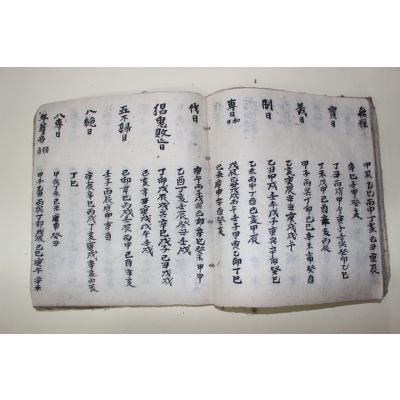 無祿
甲辰乙巳丙申丁亥己丑庚辰
辛巳壬申癸亥
寶日
丁丑丙戌甲午庚子壬寅癸卯乙巳
丁未戊申己酉辛亥丙辰
義日
甲子丙寅丁卯己巳辛未壬申癸酉
乙亥庚辰辛丑庚戌戊午
制日
乙丑甲戌壬午戊子庚寅辛卯癸巳
乙未丙申丁酉甲辰
專日
戊辰己丑戊戌丙午壬子甲寅乙卯丁巳
己未庚申辛酉癸亥
伐日
庚午丙子戊寅己卯辛巳癸未甲申
乙酉丁亥壬辰癸丑壬戌
猖鬼敗亡日
丁卯戊辰戊寅辛巳戊子己丑戊戌
己亥辛丑庚戌戊午壬戌
五不歸日
己卯辛巳丙戌壬辰丙申己酉辛亥
壬子丙辰庚申辛酉
八絶日
庚辰辛巳丙戌丁亥庚戌辛亥丙辰
丁巳
八專日
甲寅丁未己未庚申癸丑
甲子乙丑丙寅丁卯戊辰己巳庚午辛未